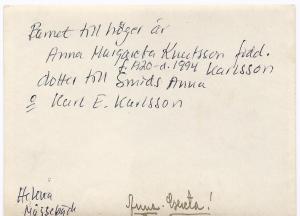 Barnet till höger är
Anna Margareta Knutsson född.
f. 1920-d. 1994 Karlsson
dotter till Smids Anna
o Karl E. Karlsson
Helena
Mässebäck
Anna-Greta!